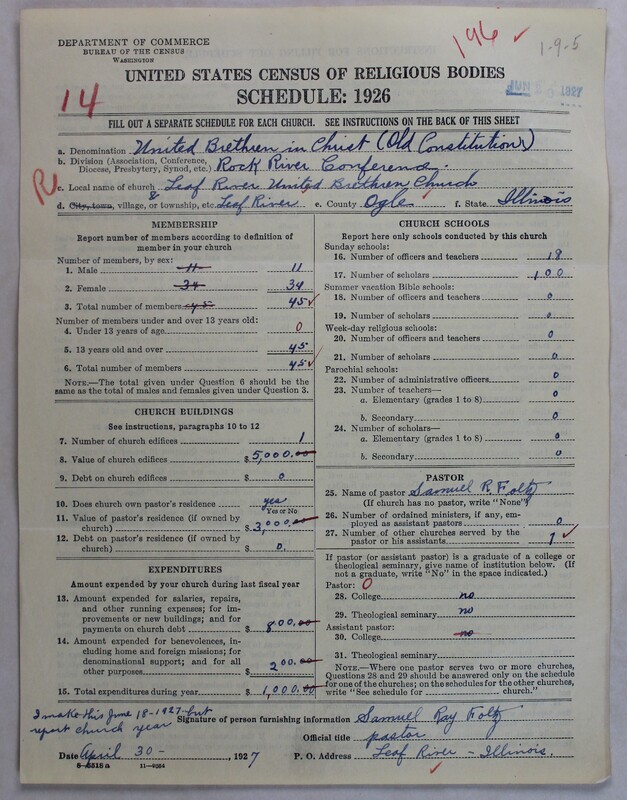 DEPARTMENT OF COMMERCE
BUREAU OF THE CENSUS
WASHINGTON
196 ✓
1-9-5
UNITED STATES CENSUS OF RELIGIOUS BODIES
SCHEDULE: 1926
JUN 1927
14
FILL OUT A SEPARATE SCHEDULE FOR EACH CHURCH. SEE INSTRUCTIONS ON THE BACK OF THIS SHEET
a. Denomination United Brethren in Christ (Old Constitution)
b. Division (Association, Conference, Diocese, Presbytery, Synod, etc.) Rock River Conference
c. Local name of church Leaf River United Brethren Church
d. City, town, village, or township, etc. Leaf River e. County Ogle f. State Illinois
MEMBERSHIP
Report number of members according to definition of
member in your church
Number of members, by sex:
1. Male 11 11
2. Female 34 34
3. Total number of members 45 45 ✓
Number of members under and over 13 years old:
4. Under 13 years of age 0
5. 13 years old and over 45
6. Total number of members 45 ✓
NOTE.—The total given under Question 6 should be
same as the total of males and females given under Question 3.
CHURCH BUILDINGS
See instructions, paragraphs 10 to 12
7. Number of church edifices 1
8. Value of church edifices $5,000.00
9. Debt on church edifices $ 0
10. Does church own pastor's residence yes
Yes or No
11. Value of pastor's residence (if owned by
church) $3,000.00
12. Debt on pastor's residence (if owned by
church) $ 0.
EXPENDITURES
Amount expended by your church during last fiscal year
13. Amount expended for salaries, repairs,
and other running expenses; for im-
provements or new buildings; and for
payments on church debt $ 800.00
14. Amount expended for benevolences, in-
cluding home and foreign missions; for
denominational support; and for all
other purposes $ 200.00
15. Total expenditures during year $ 1,000.00
CHURCH SCHOOLS
Report here only schools conducted by this church
Sunday schools:
16. Number of officers and teachers 18
17. Number of scholars 100
Summer vacation Bible schools:
18. Number of officers and teachers 0
19. Number of scholars 0
Week-day religious schools:
20. Number of officers and teachers 0
21. Number of scholars 0
Parochial schools:
22. Number of administrative officers 0
23. Number of teachers—
a. Elementary (grades 1 to 8) 0
b. Secondary 0
24. Number of scholars—
a. Elementary (grades 1 to 8) 0
b. Secondary 0
PASTOR
25. Name of pastor Samuel R. Foltz
(If church has no pastor, write "None")
26. Number of ordained ministers, if any, em-
ployed as assistant pastors 0
27. Number of other churches served by the
pastor or his assistants 1 ✓
If pastor (or assistant pastor) is a graduate of a college or
theological seminary, give name of institution below. (If
not a graduate, write "No" in the space indicated.)
Pastor: 0
28. College no
29. Theological seminary no
Assistant pastor:
30. College no
31. Theological seminary
NOTE.—Where one pastor serves two or more churches,
Questions 28 and 29 should be answered only on the schedule
for one of the churches; on the schedules for the other churches,
write "See schedule for church."
I make this June 18-1927 but
report church year
Signature of person furnishing information Samuel Ray Foltz
Official title pastor
Date April 30 - , 1927 P. O. Address Leaf River - Illinois.
8-5518 a 11-9224